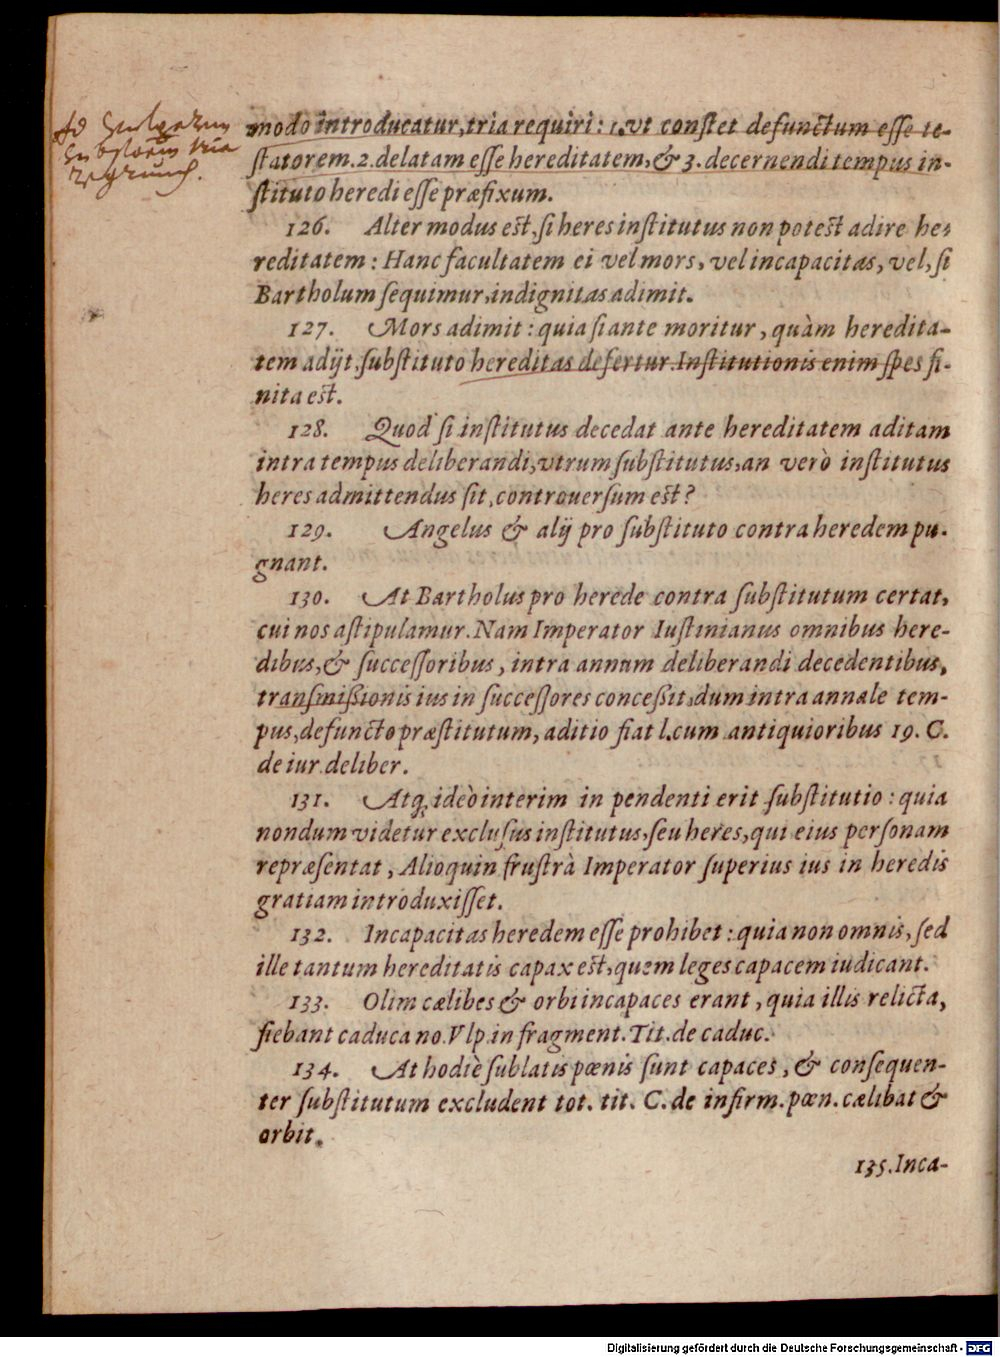 modo introducatur, tria requiri: 1. vt constet defunctum esse te-
statorem. 2. delatam esse hereditatem, & 3. decernendi tempus in-
stituto heredi esse præfixum.
126. Alter modus est, si heres institutus non potest adire he-
reditatem: Hanc facultatem ei vel mors, vel incapacitas, vel, si
Bartholum sequimur, indignitas adimit.
127. Mors adimit: quia si ante moritur, quàm heredita-
tem adijt, substituto hereditas defertur. Institutionis enim spes fi-
nita est.
128. Quod si institutus decedat ante hereditatem aditam
intra tempus deliberandi, vtrum substitutus, an verò institutus
heres admittendus sit, controuersum est?
129. Angelus & alij pro substituto contra heredem pu-
gnant.
130. At Bartholus pro herede contra substitutum certat,
cui nos astipulamur. Nam Imperator Iustinianus omnibus here-
dibus, & successoribus, intra annum deliberandi decedentibus,
transmißionis ius in successores conceßit, dum intra annale tem-
pus, defuncto præstitutum, aditio fiat l. cum antiquioribus 19. C.
de iur. deliber.
131. Atq; ideò interim in pendenti erit substitutio: quia
nondum videtur exclusus institutus, seu heres, qui eius personam
repræsentat, Alioquin frustrà Imperator superius ius in heredis
gratiam introduxisset.
132. Incapacitas heredem esse prohibet: quia non omnis, sed
ille tantum hereditatis capax est, quem leges capacem iudicant.
133. Olim cælibes & orbi incapaces erant, quia illis relicta,
fiebant caduca no. Vlp. in fragment. Tit. de caduc.
134. At hodiè sublatis pœnis sunt capaces, & consequen-
ter substitutum excludent tot. tit. C. de infirm. pœn. cælibat &
orbit.
135. Inca-
Digitalisierung gefördert durch die Deutsche Forschungsgemeinschaft - DFG